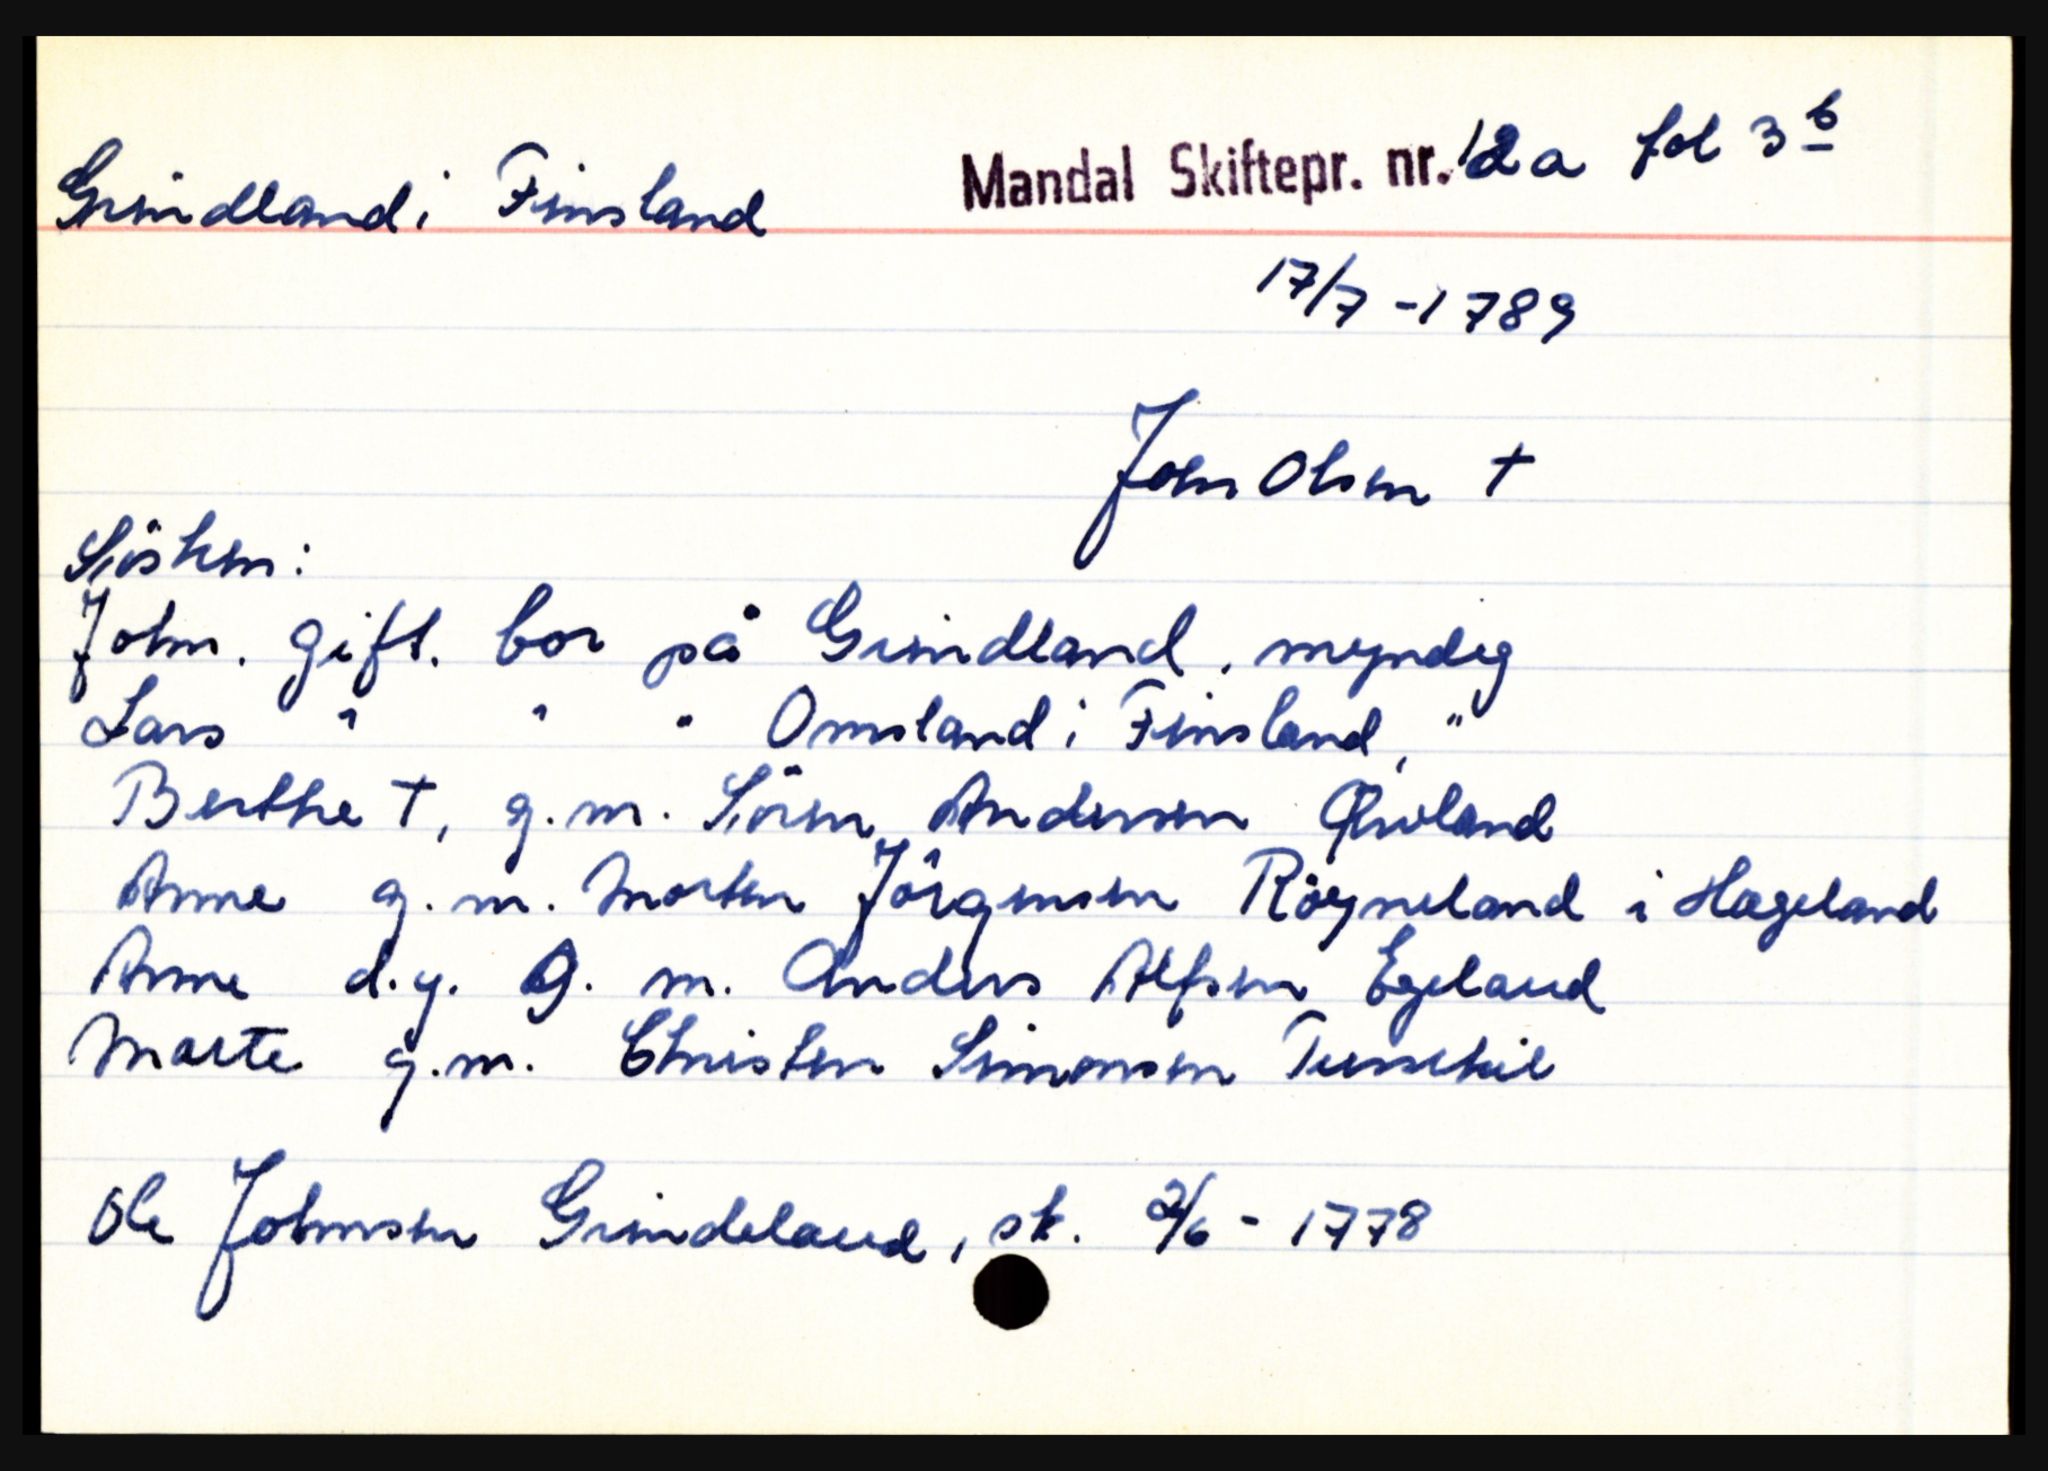 Grindland i Finsland
Mandal Skiftepr. nr. 12a fol 3 b
17/7 - 1789
John Olsen †
Sösken:
John. gift. bor på Grindland, myndig
Lars " " " Omsland i Finsland, "
Berthe †, g.m. Sören Andersen
Anne g.m. Morten Jörgensen Röyneland i Hægeland
Anne d.y. g.m. Anders Alfsen Egeland
Marte g.m. Christen Simonsen
Ole Johnsen Grindeland, sk. 2/6 - 1778